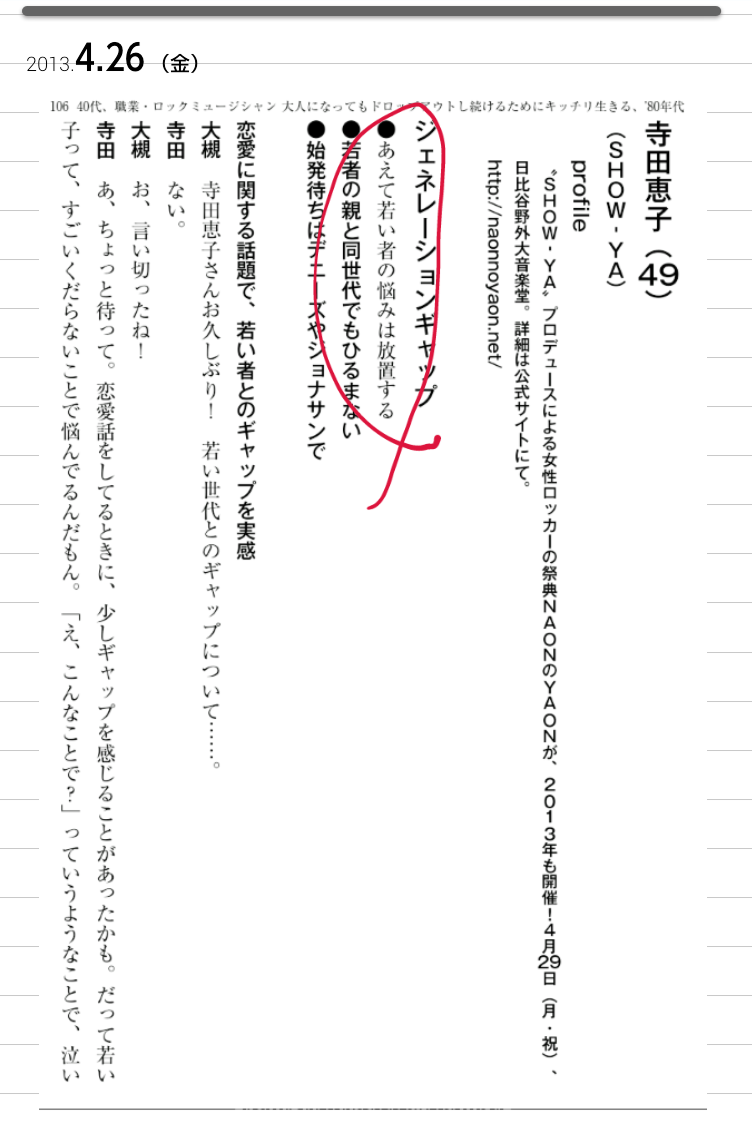 2013.4.26（金）
106 40代、職業・ロックミュージシャン 大人になってもドロップアウトし続けるためにキッチリ生きる、'80年代
寺田恵子（49）
（SHOW-YA）
profile
〝SHOW-YA〟プロデュースによる女性ロッカーの祭典NAONのYAONが、2013年も開催！4月29日（月・祝）、
日比谷野外大音楽堂。詳細は公式サイトにて。
http://naonnoyaon.net/
ジェネレーションギャップ
●あえて若い者の悩みは放置する
●若者の親と同世代でもひるまない
●始発待ちはデニーズやジョナサンで
恋愛に関する話題で、若い者とのギャップを実感
大槻　寺田恵子さんお久しぶり！　若い世代とのギャップについて……。
寺田　ない。
大槻　お、言い切ったね！
寺田　あ、ちょっと待って。恋愛話をしてるときに、少しギャップを感じることがあったかも。だって若い
子って、すごいくだらないことで悩んでるんだもん。「え、こんなことで？」っていうようなことで、泣い